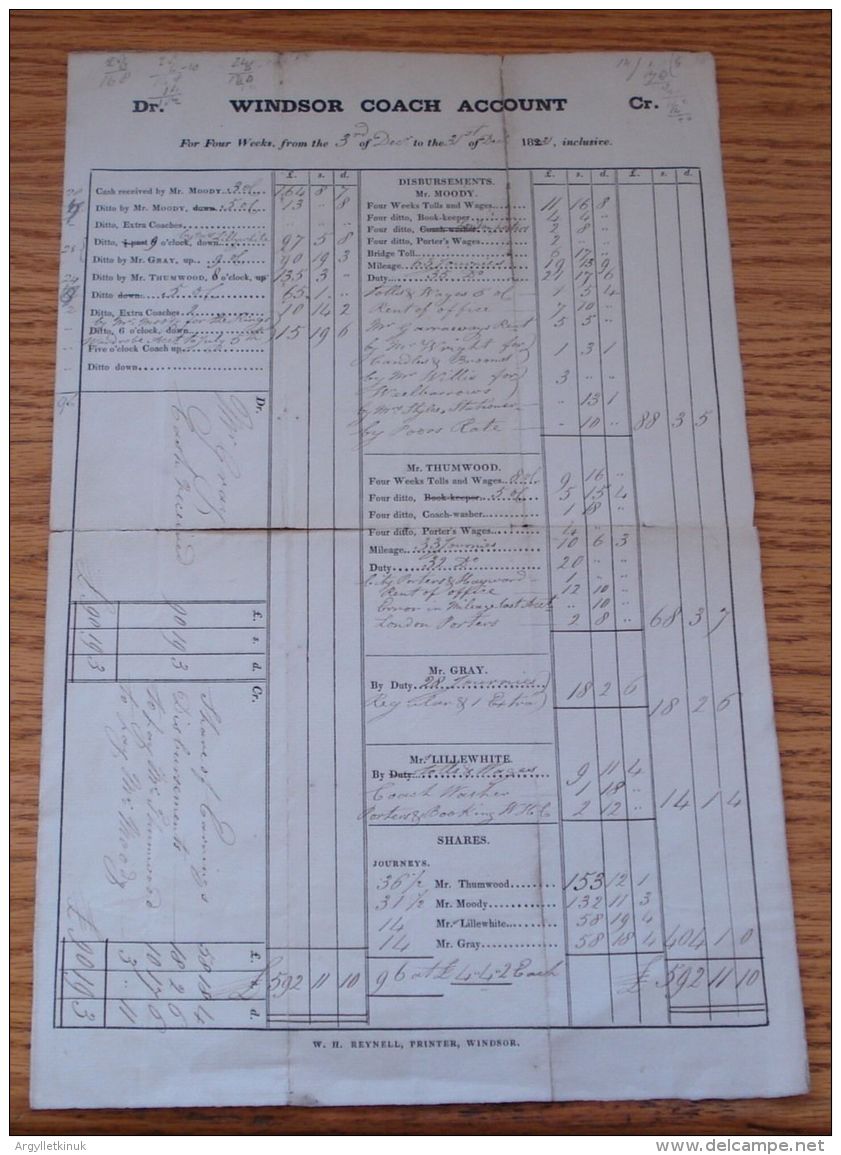 Dr. WINDSOR COACH ACCOUNT Cr.
For Four Weeks, from the 3rd of Decr to the of 182, inclusive.
Cash received by Mr. MOODY. 164 8 7
Ditto by Mr. MOODY, down. 5 o/ 13 .. 8
Ditto, Extra Coaches
Ditto, ½ past 9 o'clock, down 97 5 8
Ditto by Mr. GRAY, up 9 o/ 90 19 3
Ditto by Mr. THUMWOOD, 8 o'clock, up 135 3 ..
Ditto down. 5 o/ 65 1 ..
Ditto, Extra Coaches 2 10 14 2
by Mr. Moody for the Kings
Ditto, 6 o'clock, down 15 19 6
Wardrobe Acct to July 5th
Five o'clock Coach up
Ditto down
£592 11 10
£. s. d.
DISBURSEMENTS.
Mr. MOODY.
Four Weeks Tolls and Wages 11 16 8
Four ditto, Book-keeper 4 4 ..
Four ditto, Coach-washer 2 8 ..
Four ditto, Porter's Wages 2 .. ..
Bridge Toll 6 17 ..
Mileage 63 Journies 19 13 9
Duty 35 Do 21 17 6
Tolls & Wages 5 o/ 1 5 4
Rent of office 7 10 ..
Mr Garraways Rent 5 5 ..
by Mr Wright for
Candles & Brooms 1 3 1
by Mr Willis for
Wheelbarrows 3 .. ..
by Mrs Styles, Stationer .. 13 1
by Poors Rate .. 10 .. 88 3 5
Mr. THUMWOOD.
Four Weeks Tolls and Wages 8 o/ 9 16 ..
Four ditto, Book-keeper 5 o/ 5 15 4
Four ditto, Coach-washer 1 18 ..
Four ditto, Porter's Wages 4 .. ..
Mileage 33 Journies 10 6 3
Duty 32 Do 20 .. ..
City Porters & Hayward 1 .. ..
Rent of office 12 10 ..
Error in Mileage last Acct .. 10 ..
London Porters 2 8 .. 68 3 7
Mr. GRAY.
By Duty 28 Journies
Regular & 1 Extra 18 2 6 18 2 6
Mr. LILLEWHITE.
By Duty Tolls & Wages 9 11 4
Coach Washer 1 18 ..
Porters & Booking W.H.C 2 12 .. 14 1 4
SHARES.
JOURNEYS.
36½ Mr. Thumwood 153 12 1
31½ Mr. Moody 132 11 3
14 Mr. Lillewhite 58 19 4
14 Mr. Gray 58 18 4 404 1 0
96 at £4-4-2 Each £592 11 10
Dr. Mr Gray Cr.
£. s. d.
Cash received 90 19 3
£90 19 3
£. s. d.
Share of Earnings 58 18 4
Disbursements 18 2 6
To pay Mr Thumwood 10 17 6
To pay Mr Moody 3 .. 11
£90 19 3
W. H. REYNELL, PRINTER, WINDSOR.
Argylletkinuk
delcampe.net